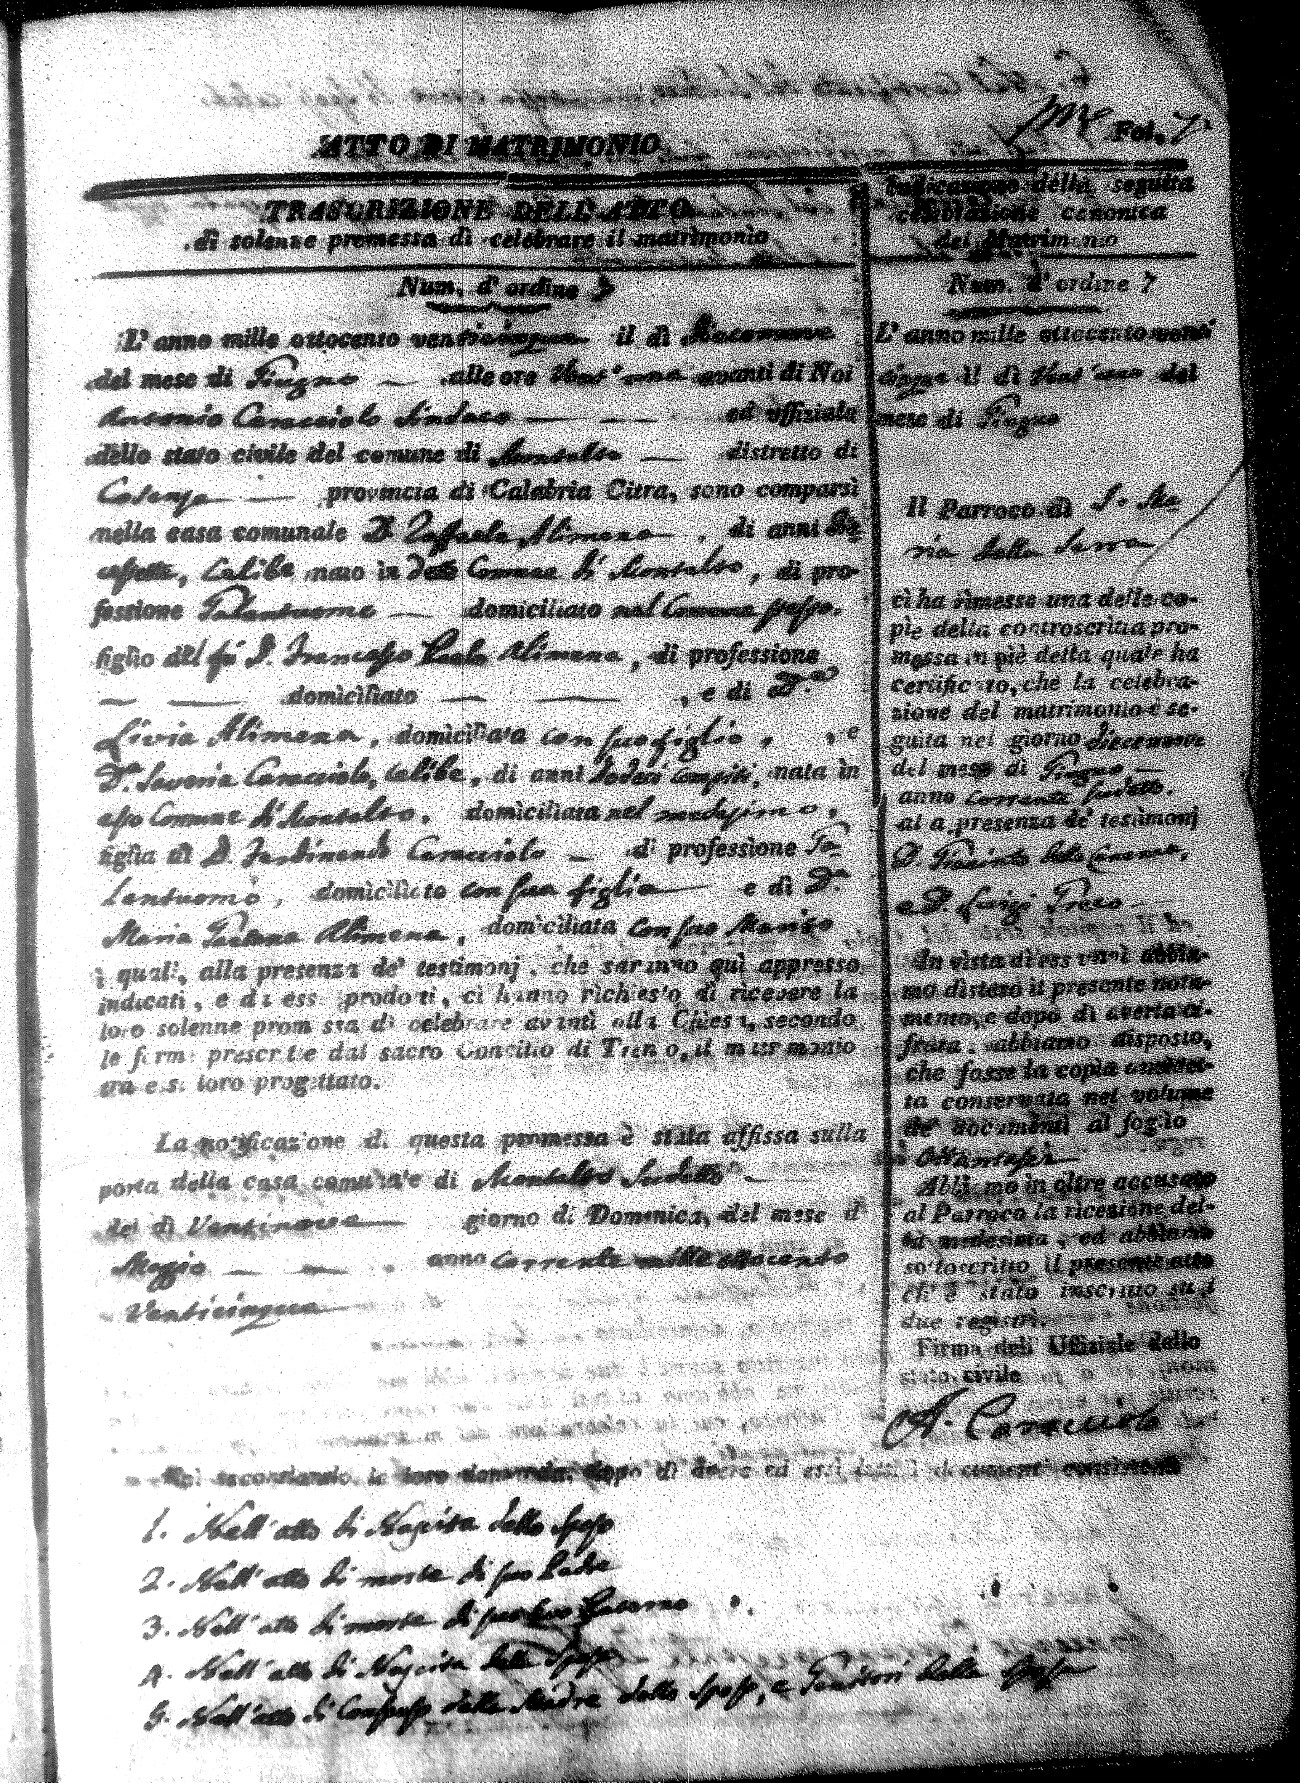 Fol. 7
ATTO DI MATRIMONIO
TRASCRIZIONE DELL'ATTO
di solenne promessa di celebrare il matrimonio
Num. d'ordine 7
L'anno mille ottocento venticinque il dì diecennove
del mese di Giugno — alle ore vent'una avanti di Noi
Antonio Caracciolo Sindaco — — — ed uffiziale
dello stato civile del comune di Montalto — distretto di
Cosenza — provincia di Calabria Citra, sono comparsi
nella casa comunale D. Raffaele Alimena, di anni
celibe nato in detto Comune di Montalto, di pro-
fessione Galantuomo — domiciliato nel Comune stesso.
figlio del fu D. Francesco Paolo Alimena, di professione
— — domiciliato — — , e di D.na
Livia Alimena, domiciliata con suo figlio, , e
D.na Saveria Caracciolo, celibe, di anni dodeci compiti, nata in
esso Comune di Montalto, domiciliata nel medesimo,
figlia di D. Ferdinando Caracciolo — di professione Ga-
lantuomo, domiciliato con sua figlia — e di D.na
Maria Gaetana Alimena, domiciliata con suo Marito
i quali, alla presenza de' testimonj, che saranno quì appresso
indicati, e da essi prodotti, ci hanno richiesto di ricevere la
loro solenne promessa di celebrare avanti alla Chiesa, secondo
le forme prescritte dal sacro Concilio di Trento, il matrimonio
tra essi loro progettato.
La notificazione di questa promessa è stata affissa sulla
porta della casa comunale di Montalto sudetto —
de' dì Ventinove — giorno di Domenica, del mese di
Maggio — — . anno corrente mille ottocento
Venticinque —
Indicazione della seguita
celebrazione canonica
del Matrimonio
Num. d'ordine 7
L'anno mille ottocento venti
cinque il dì vent'uno del
mese di Giugno
Il Parroco di S. Ma
ria della Serra
ci ha rimesso una delle co-
pie della controscritta pro-
messa in piè della quale ha
certificato, che la celebra-
zione del matrimonio è se-
guita nel giorno diecennove
del mese di Giugno —
anno corrente sudetto.
alla presenza de' testimonj
D. Giacinto
e D. Luigi Greco —
In vista di essa noi abbia-
mo disteso il presente nota-
mento, e dopo di averla ci-
frata, abbiamo disposto,
che fosse la copia anzidet-
ta conservata nel volume
de' documenti al foglio
Ottantasei
Abbiamo in oltre accusato
al Parroco la ricezione del-
la medesima, ed abbiamo
sottoscritto il presente atto
ch'è stato inscritto su i
due registri.
Firma dell' Uffiziale dello
stato civile
A. Caracciolo
Noi secondando la loro domanda, dopo di avere ed essi letti i documenti consistenti
1. Nell'atto di Nascita dello Sposo
2. Nell'atto di morte di suo Padre
3. Nell'atto di morte di suo Avo Paterno
4. Nell'atto di Nascita della Sposa
5. Nell'atto di Consenso della Madre dello Sposo, e Genitori della Sposa